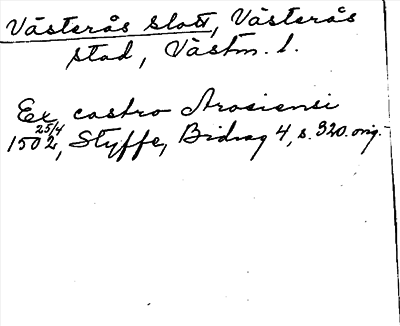 Västerås slott, Västerås
stad, Västm. l.
Ex castro Arosiensi
1502 25/4, Styffe, Bidrag 4, s. 320. orig.-